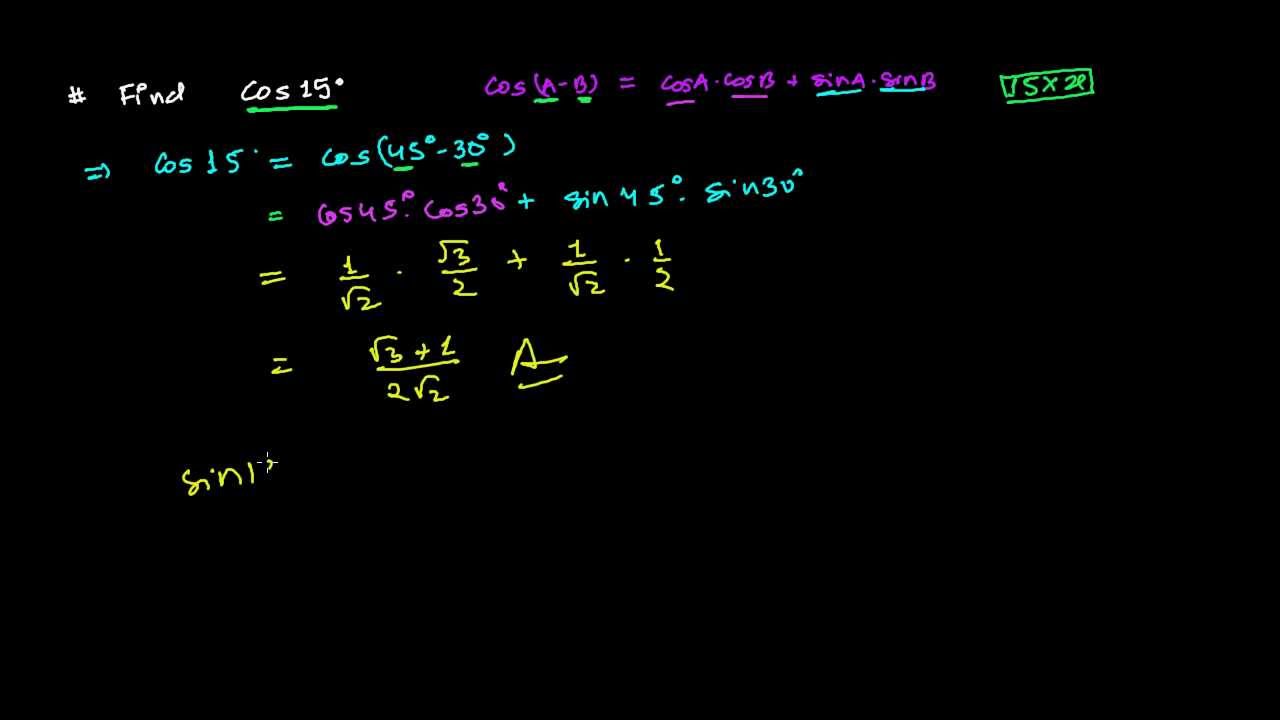 # Find Cos 15° Cos(A-B) = CosA·CosB + sinA·sinB 15×2
⇒ Cos 15° = Cos(45°-30°)
= Cos45°·Cos30° + sin45°·sin30°
= 1/√2 · √3/2 + 1/√2 · 1/2
= √3+1/2√2 A